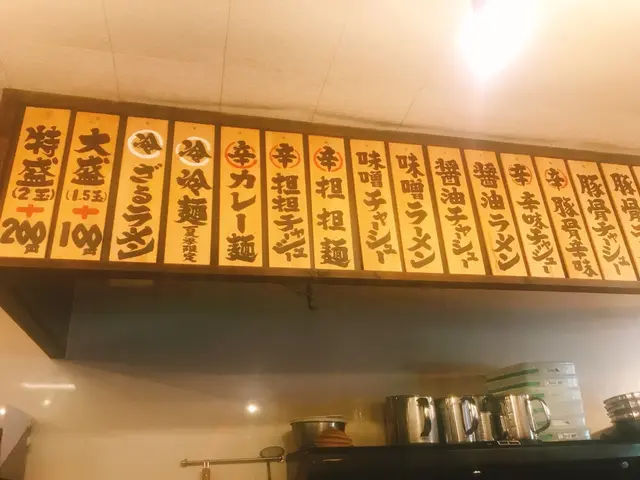 豚骨
豚骨チャーシュー
辛 豚骨辛味
辛 辛味チャーシュー
醤油ラーメン
醤油チャーシュー
味噌ラーメン
味噌チャーシュー
辛 担担麺
辛 担担チャーシュー
辛 カレー麺
冷 冷麺 夏季限定
冷 ざるラーメン
大盛(1.5玉)+100円
特盛(2玉)+200円